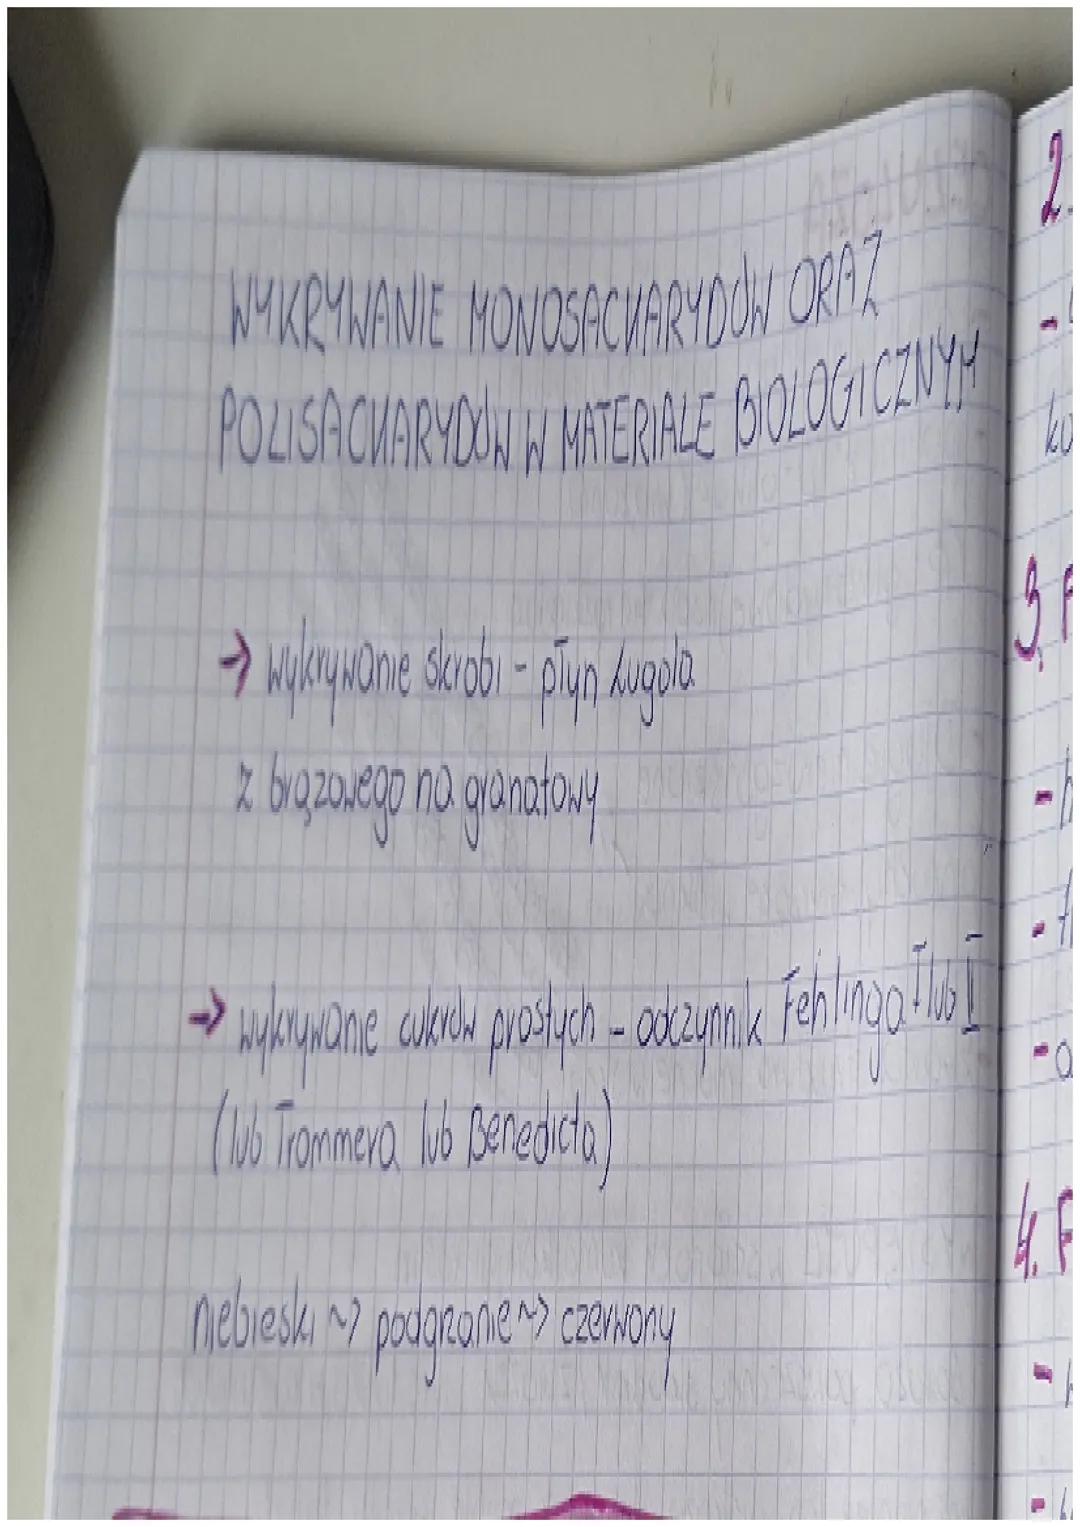 WYKRYWANIE MONOSACHARYDÓW ORAZ
POLISACHARYDÓW W MATERIALE BIOLOGICZNYM
→ wykrywanie skrobi - płyn Lugola
z brązowego na granatowy
→ wykrywanie cukrów prostych - odczynnik Fehlinga I lub II
(lub Trommera lub Benedicta)
niebieski ~> podgrzanie ~> czerwony
2.
3.
4.